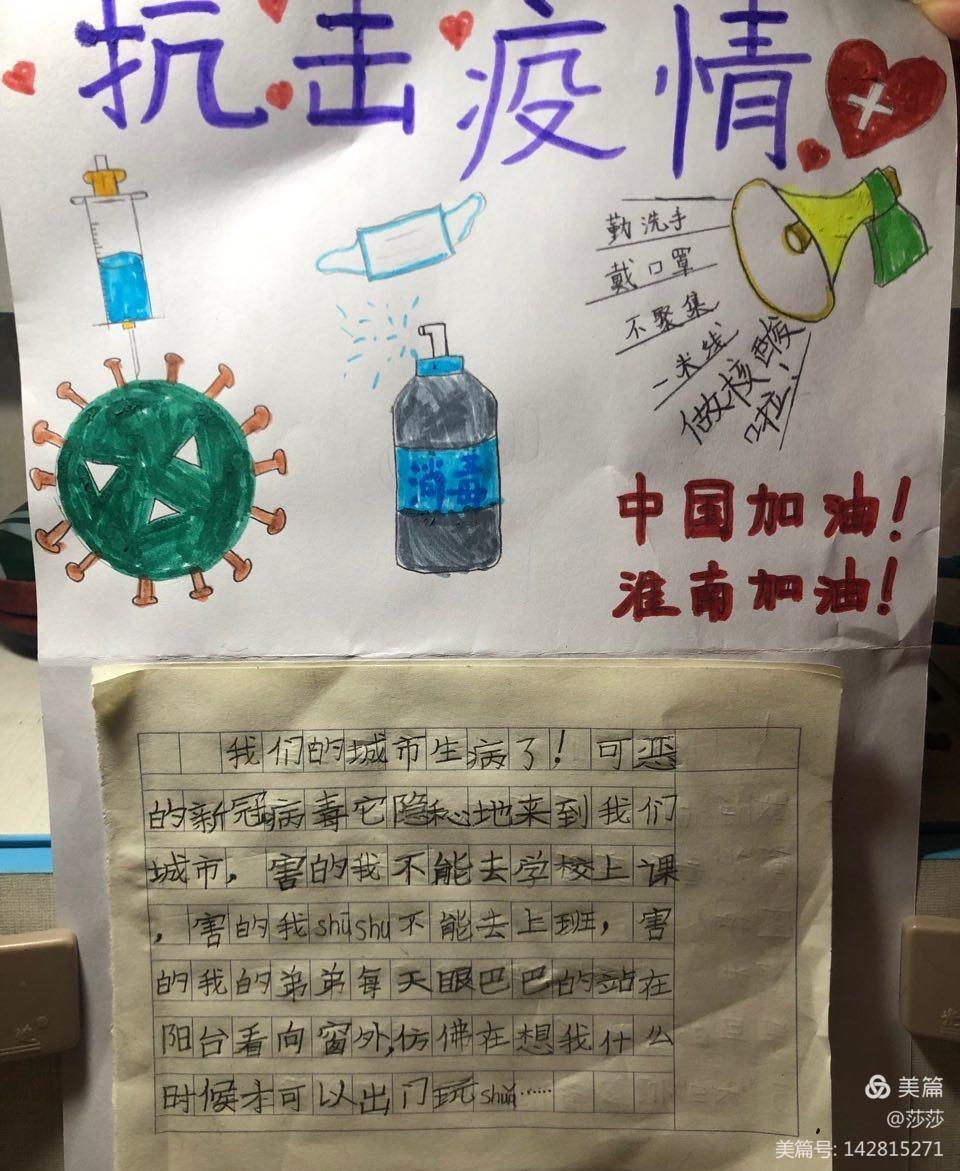 抗击疫情
勤洗手
戴口罩
不聚集
一米线
做核酸
啦!
消毒
中国加油!
淮南加油!
我们的城市生病了!可恶
的新冠病毒它隐秘地来到我们
城市,害的我不能去学校上课
,害的我shūshu不能去上班,害
的我的弟弟每天眼巴巴的站在
阳台看向窗外,仿佛在想我什么
时候才可以出门玩shuǎ……
美篇
@莎莎
美篇号: 142815271